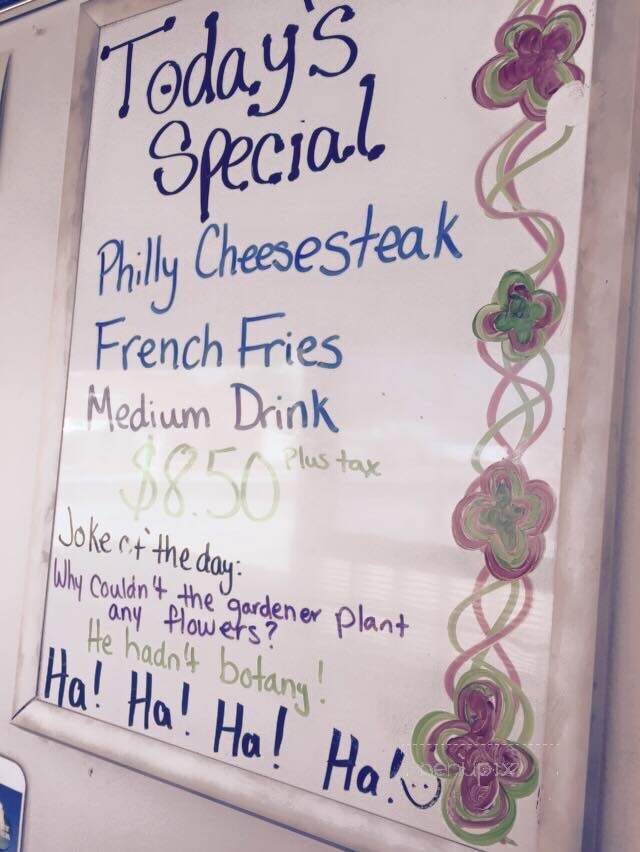 Today's
Special
Philly Cheesesteak
French Fries
Medium Drink
$8.50 Plus tax
Joke of the day:
Why Couldn't the gardener plant
any flowers?
He hadn't botany!
Ha! Ha! Ha! Ha!
menupix